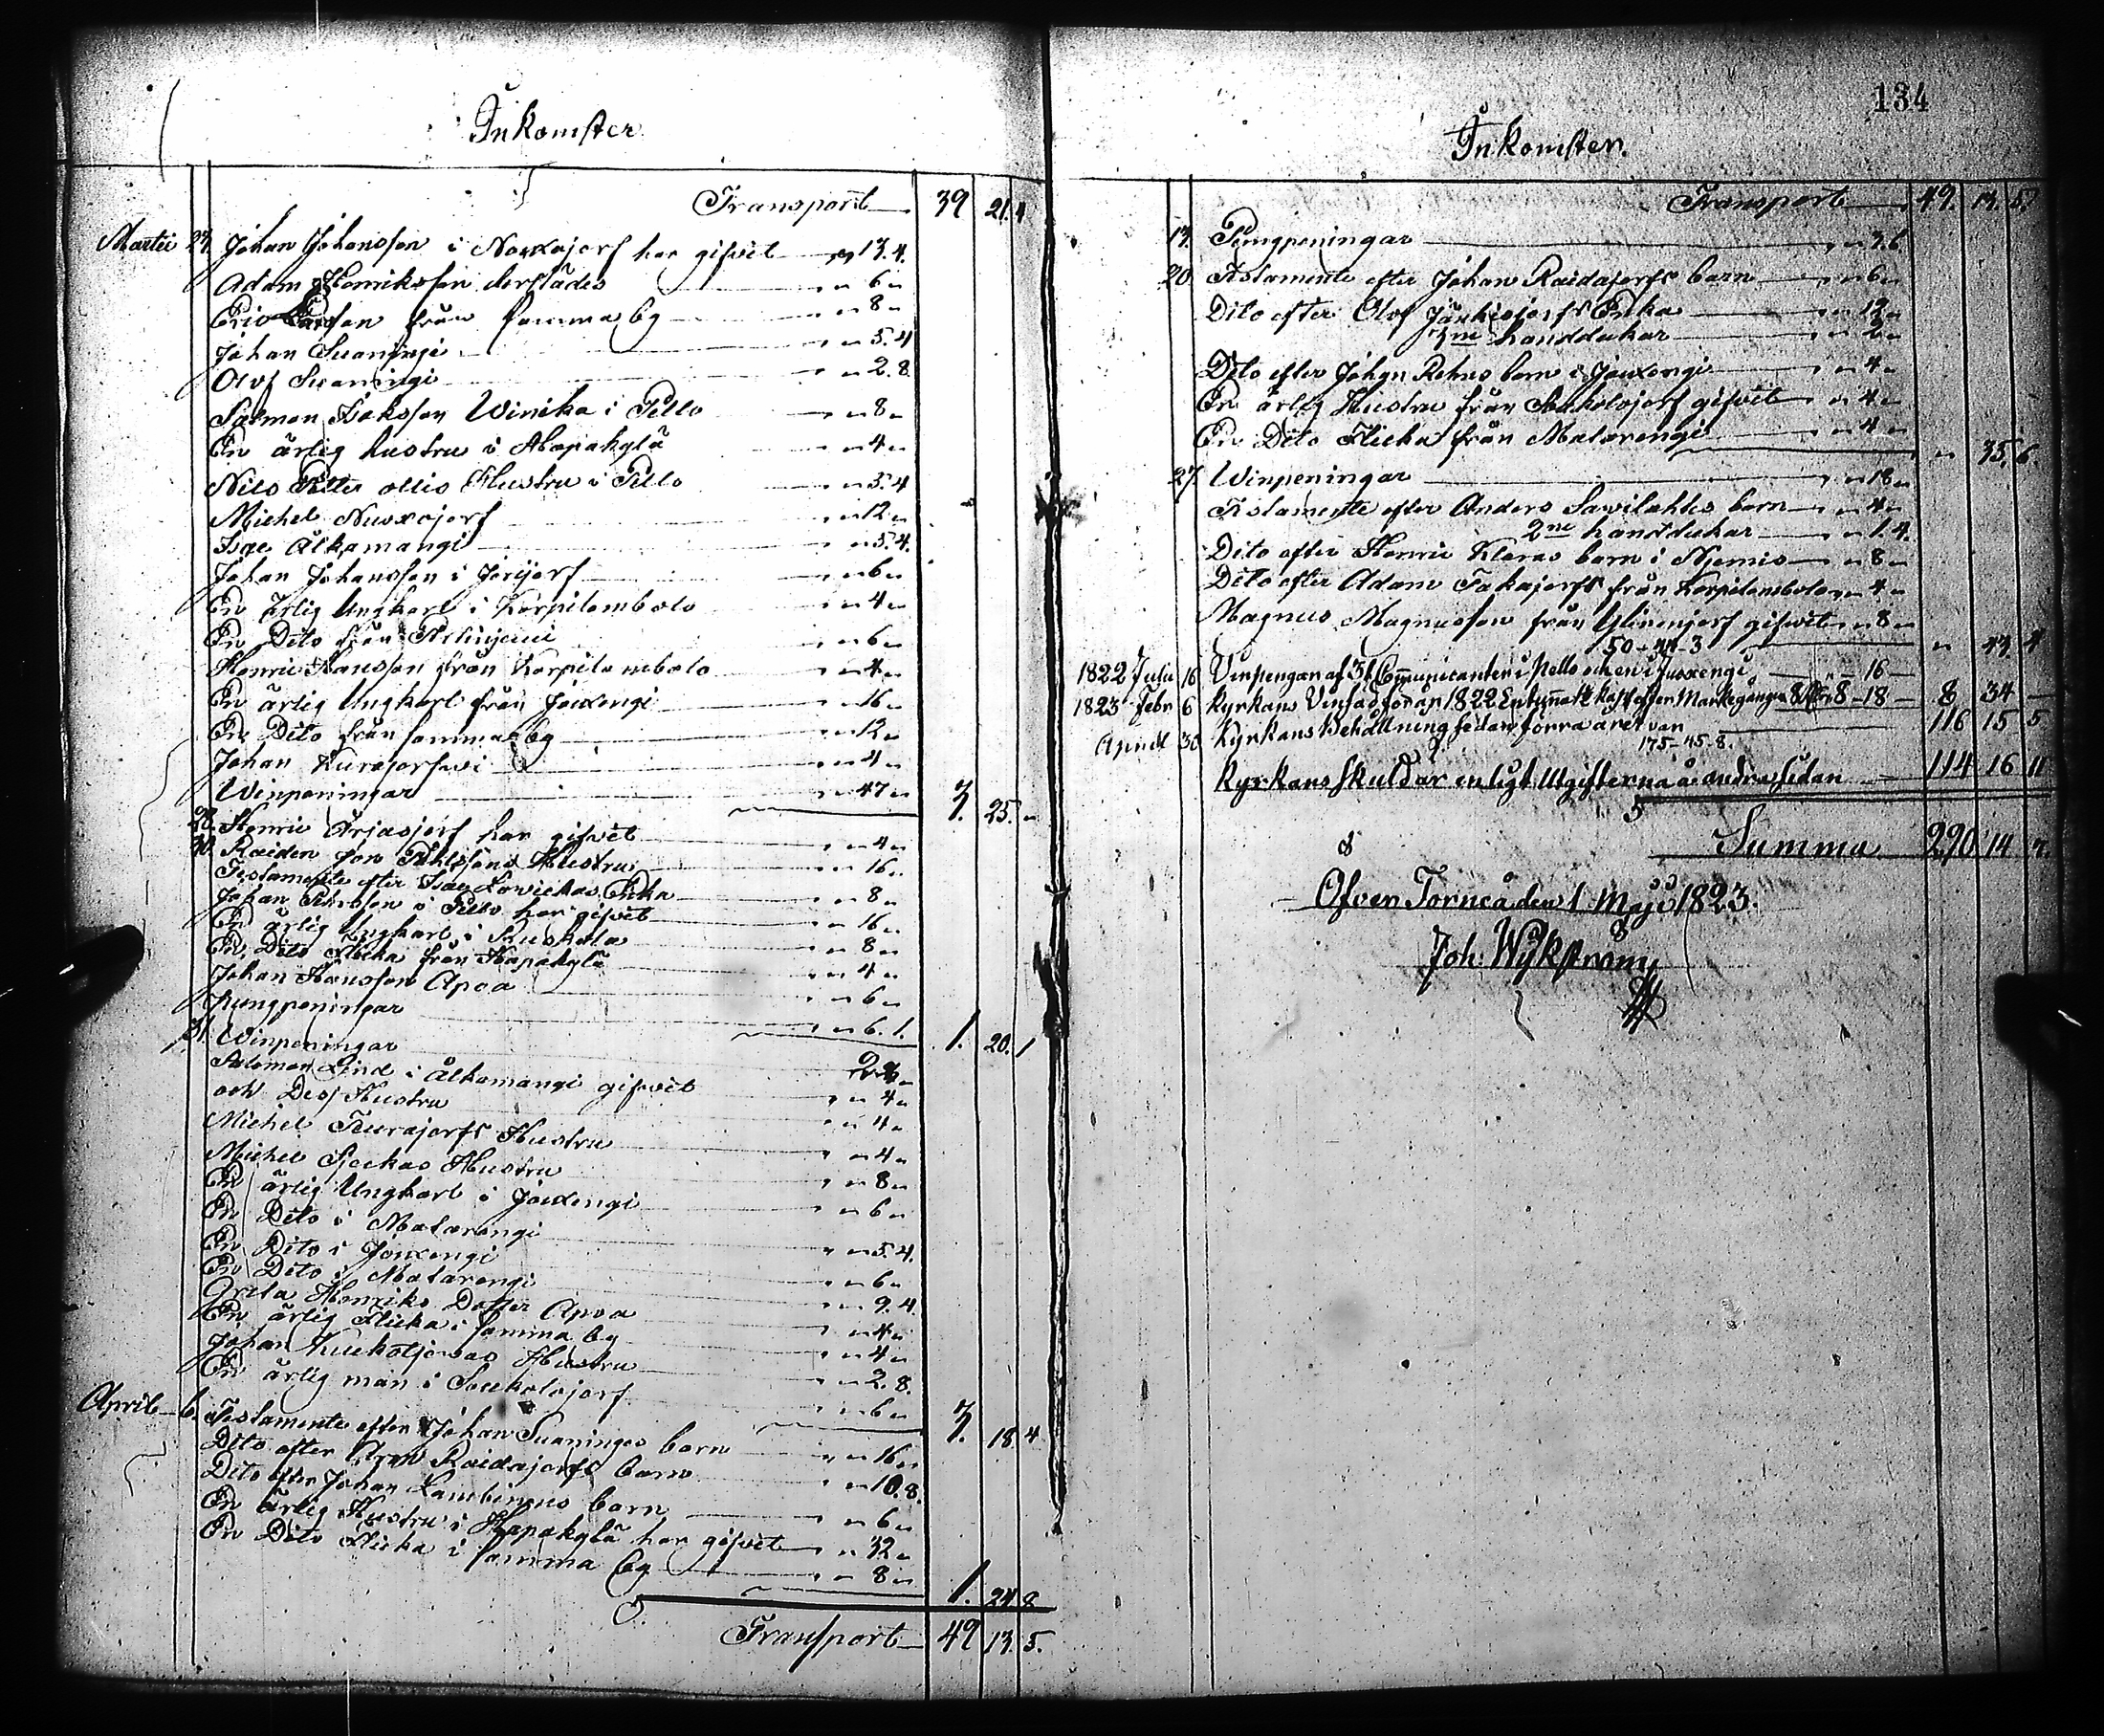 Inkomster
Transport 39 21. 4
Martii 23. Johan Johansson i Narxajerf har gifvit " 13. 4.
Adam Henriksson derstädes " 6 "
Eric Larsson från samma by " 8 "
Johan Suaningi " 5. 4
Olof Suaningi " 2. 8.
Salmon Isaksson Winika i Pello " 8 "
En ärlig hustru i Haapakylä " 4 "
Nils Petter ollis Hustru i Pello " 5. 4
Michel Nuoxajerf " 12 "
Isac Alkamangi " 5. 4.
Johan Johansson i Jerijerf " 6 "
En ärlig Ungkarl i Korpilombolo " 4 "
En Dito från " 6 "
Henric Hansson från Korpilombolo " 4 "
En ärlig Ungkarl från Jouxengi " 16 "
En Dito från samma by " 12 "
Johan Kurajerfwi " 4 "
Winpeningar " 47 " 3. 25. "
28. Henric Ärjasjerf har gifvit " 4 "
30. Raiden Jon Pählssons Hustru " 16 "
Testamente efter Isac Lowickas Enka " 8 "
Johan Pehrsson i Pello har gifvit " 16 "
En ärlig Ungkarl i Ruskola " 8 "
En Dito Flicka från Haapakylä " 4 "
Johan Hansson Apoa " 6 "
Pungpeningar " 6. 1. 1. 20. 1
31. Winpeningar
Salomon Lind i Alkamangi gifvit " 4 "
och Dess Hustru " 4 "
Michel Turajerfs Hustru " 4 "
Michel Sjockas Hustru " 8 "
En ärlig Ungkarl i Jouxengi " 6 "
En Dito i Matarengi " 5. 4.
En Dito i Jouxengi " 6 "
En Dito i Matarengi " 9. 4.
Greta Henriks Dotter Apoa " 4 "
En ärlig Flicka i samma by " 4 "
Johan Kuckoljerwas Hustru " 2. 8.
En ärlig man i Soukolojerf " 6 " 3. 18. 4
April 6. Testamente efter Johan Suaningis barn " 16 "
Dito efter Aron Raidajerfs barn " 10. 8.
Dito efter Johan Lambinens barn " 6 "
En ärlig Hustru i Haapakylä har gifvit " 32 "
En Dito Flicka i samma by " 8 " 1. 24 8
Transport 49 13. 5.
134
Inkomster.
Transport 49. 13. 5.
13. Pungpeningar " 3. 6
20. Testamente efter Johan Raidajerfs barn " 6 "
Dito efter Olof Jänkisjerfs Enka " 12 "
3ne handdukar " 2 "
Dito efter Johan Rehns barn i Jouxengi " 4 "
En ärlig Hustru från Soukolojerf gifvit " 4 "
En Dito Flicka från Matarengi " 4 " " 35. 6.
27. Winpeningar " 18 "
Testamente efter Anders Sawilahtis barn " 4 "
2ne handdukar " 1. 4.
Dito efter Henric Kleras barn i Njemis " 8 "
Dito efter Adam Takajerfs från Korpilombolo " 4 "
Magnus Magnusson från Ylinenjerf gifvit " 8 " " 43 4
50 - 44 - 3
1822 Julii 16 Vinpengar af 31 Communicanter i Pello och en i Juoxengi - 16 -
1823 Febr 6 Kyrkans Vinsäd för år 1822 efter Markegången 8 - 18 - 8 34 -
April 30 Kyrkans Behållning sedan förra året var 116 15 5
175 - 45 - 8.
Kyrkans Skuld är enligt Utgifterna å andra sidan 114 16 11
Summa 290 14 7.
Öfver Torneå den 1 Maji 1823.
Joh: Wykström